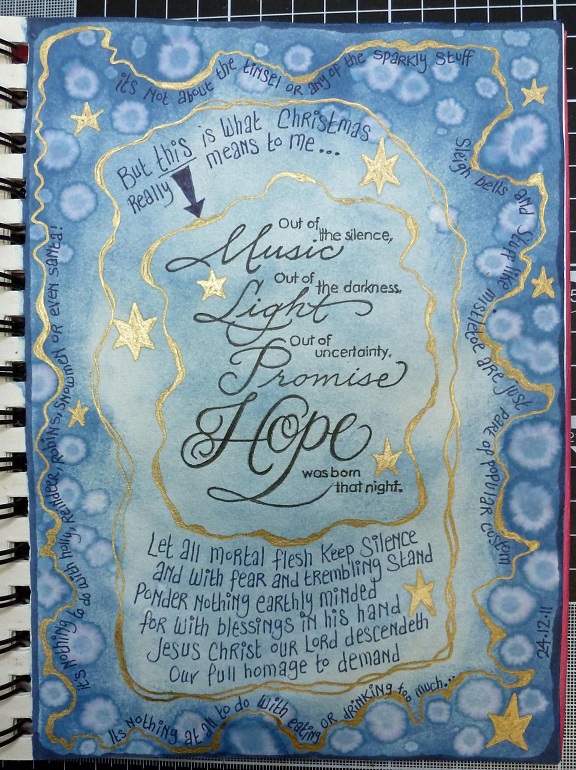 its not about the tinsel or any of the sparkly stuff
Sleigh bells and stuff like mistletoe are just part of popular custom
But this is what Christmas
Really means to me...
Out of
the silence,
Music
Out of
the darkness,
Light
Out of
uncertainty,
Promise
Hope
was born
that night.
Let all mortal flesh Keep Silence
and with fear and trembling Stand
Ponder nothing earthly minded
for with blessings in his hand
Jesus Christ our Lord descendeth
Our full homage to demand
its nothing at all to do with eating or drinking too much...
it's nothing to do with holly, Reindeer, Robins, Snowmen or even Santa!
24.12.11